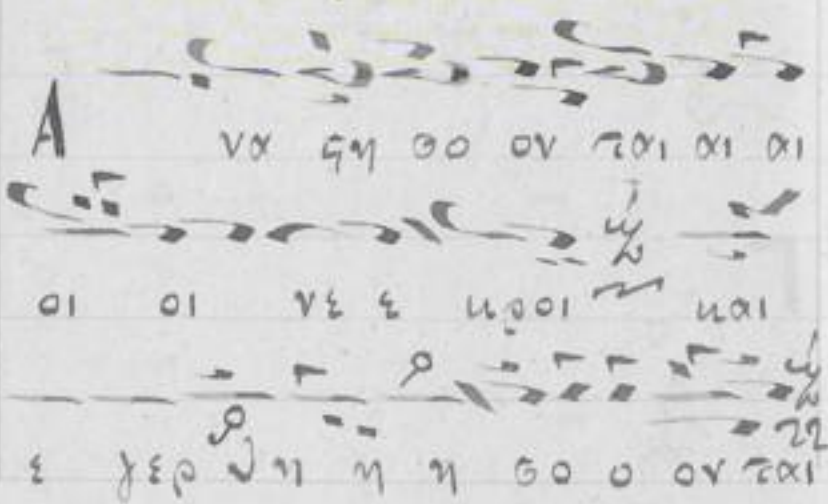 Α να ϛη σο ον ται αι αι
οι οι νε ε κροι και
ε γερ θη η η σο ο ον ται